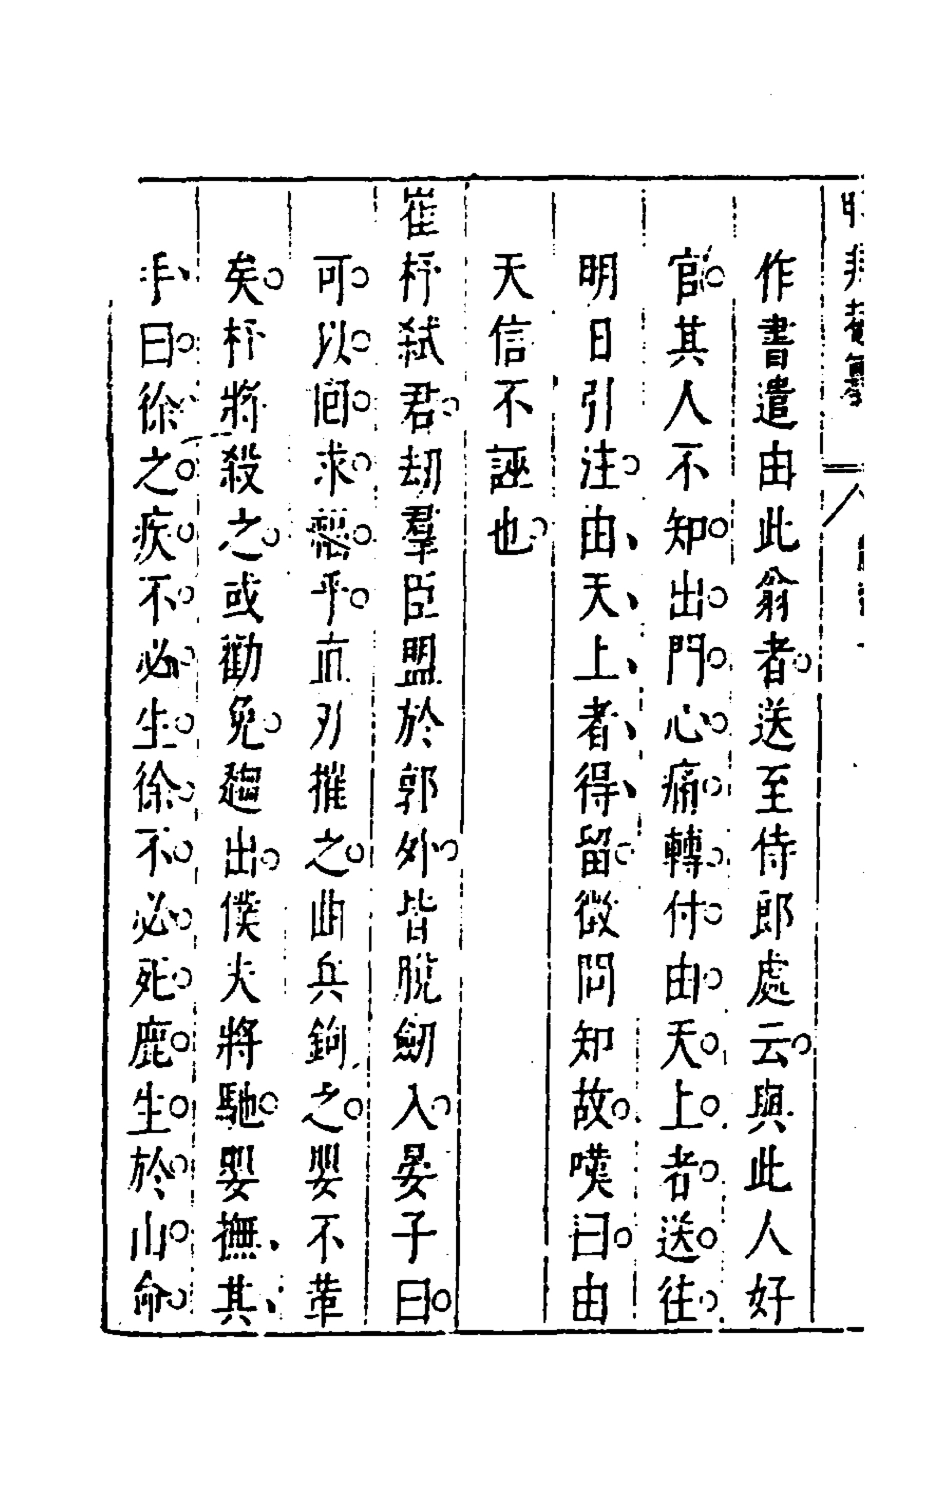 作書遣由此翁者送至侍郎處云與此人好
官其人不知出門心痛轉付由天上者送往
明日引注由天上者得留徴問知故嘆曰由
天信不誣也
崔杼弑君劫羣臣盟於郭外皆脫劒入晏子曰
可以回求福乎直刃摧之曲兵鉤之嬰不革
矣杼將殺之或勸免趨出僕夫將馳嬰撫其
手曰徐之疾不必生徐不必死鹿生於山命